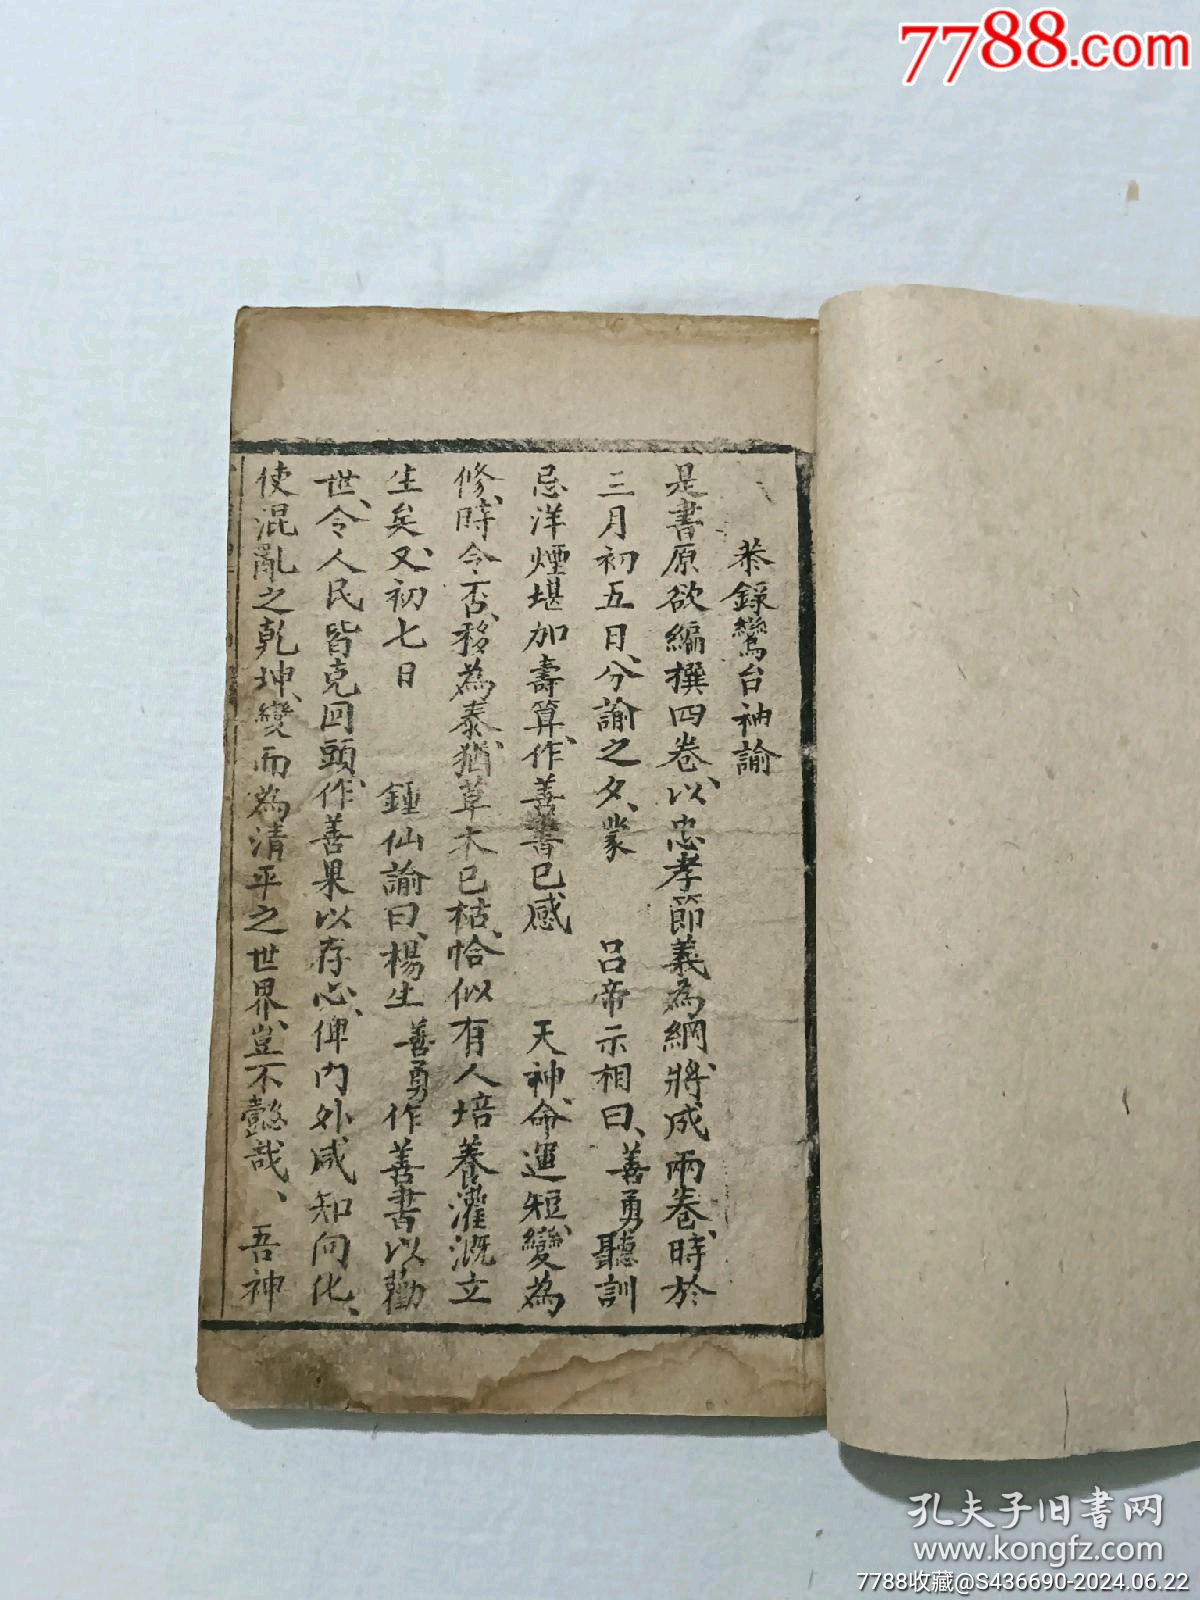 7788.com
恭錄鸞台神諭
是書原欲編撰四卷、以忠孝節義為綱、將成兩卷、時於
三月初五日、分諭之夕、蒙 呂帝示相曰、善勇聽訓
忌洋煙堪加壽算、作善書已感 天神、命運短、變為
修、時令否、移為泰、猶草木已枯、恰似有人培養灌溉立
生矣、又初七日 鍾仙諭曰、楊生善勇作善書以勸
世、令人民皆克回頭、作善果以存心、俾內外咸知向化、
使混亂之乾坤、變而為清平之世界、豈不懿哉、吾神
孔夫子旧书网
www.kongfz.com
7788收藏@S436690-2024.06.22